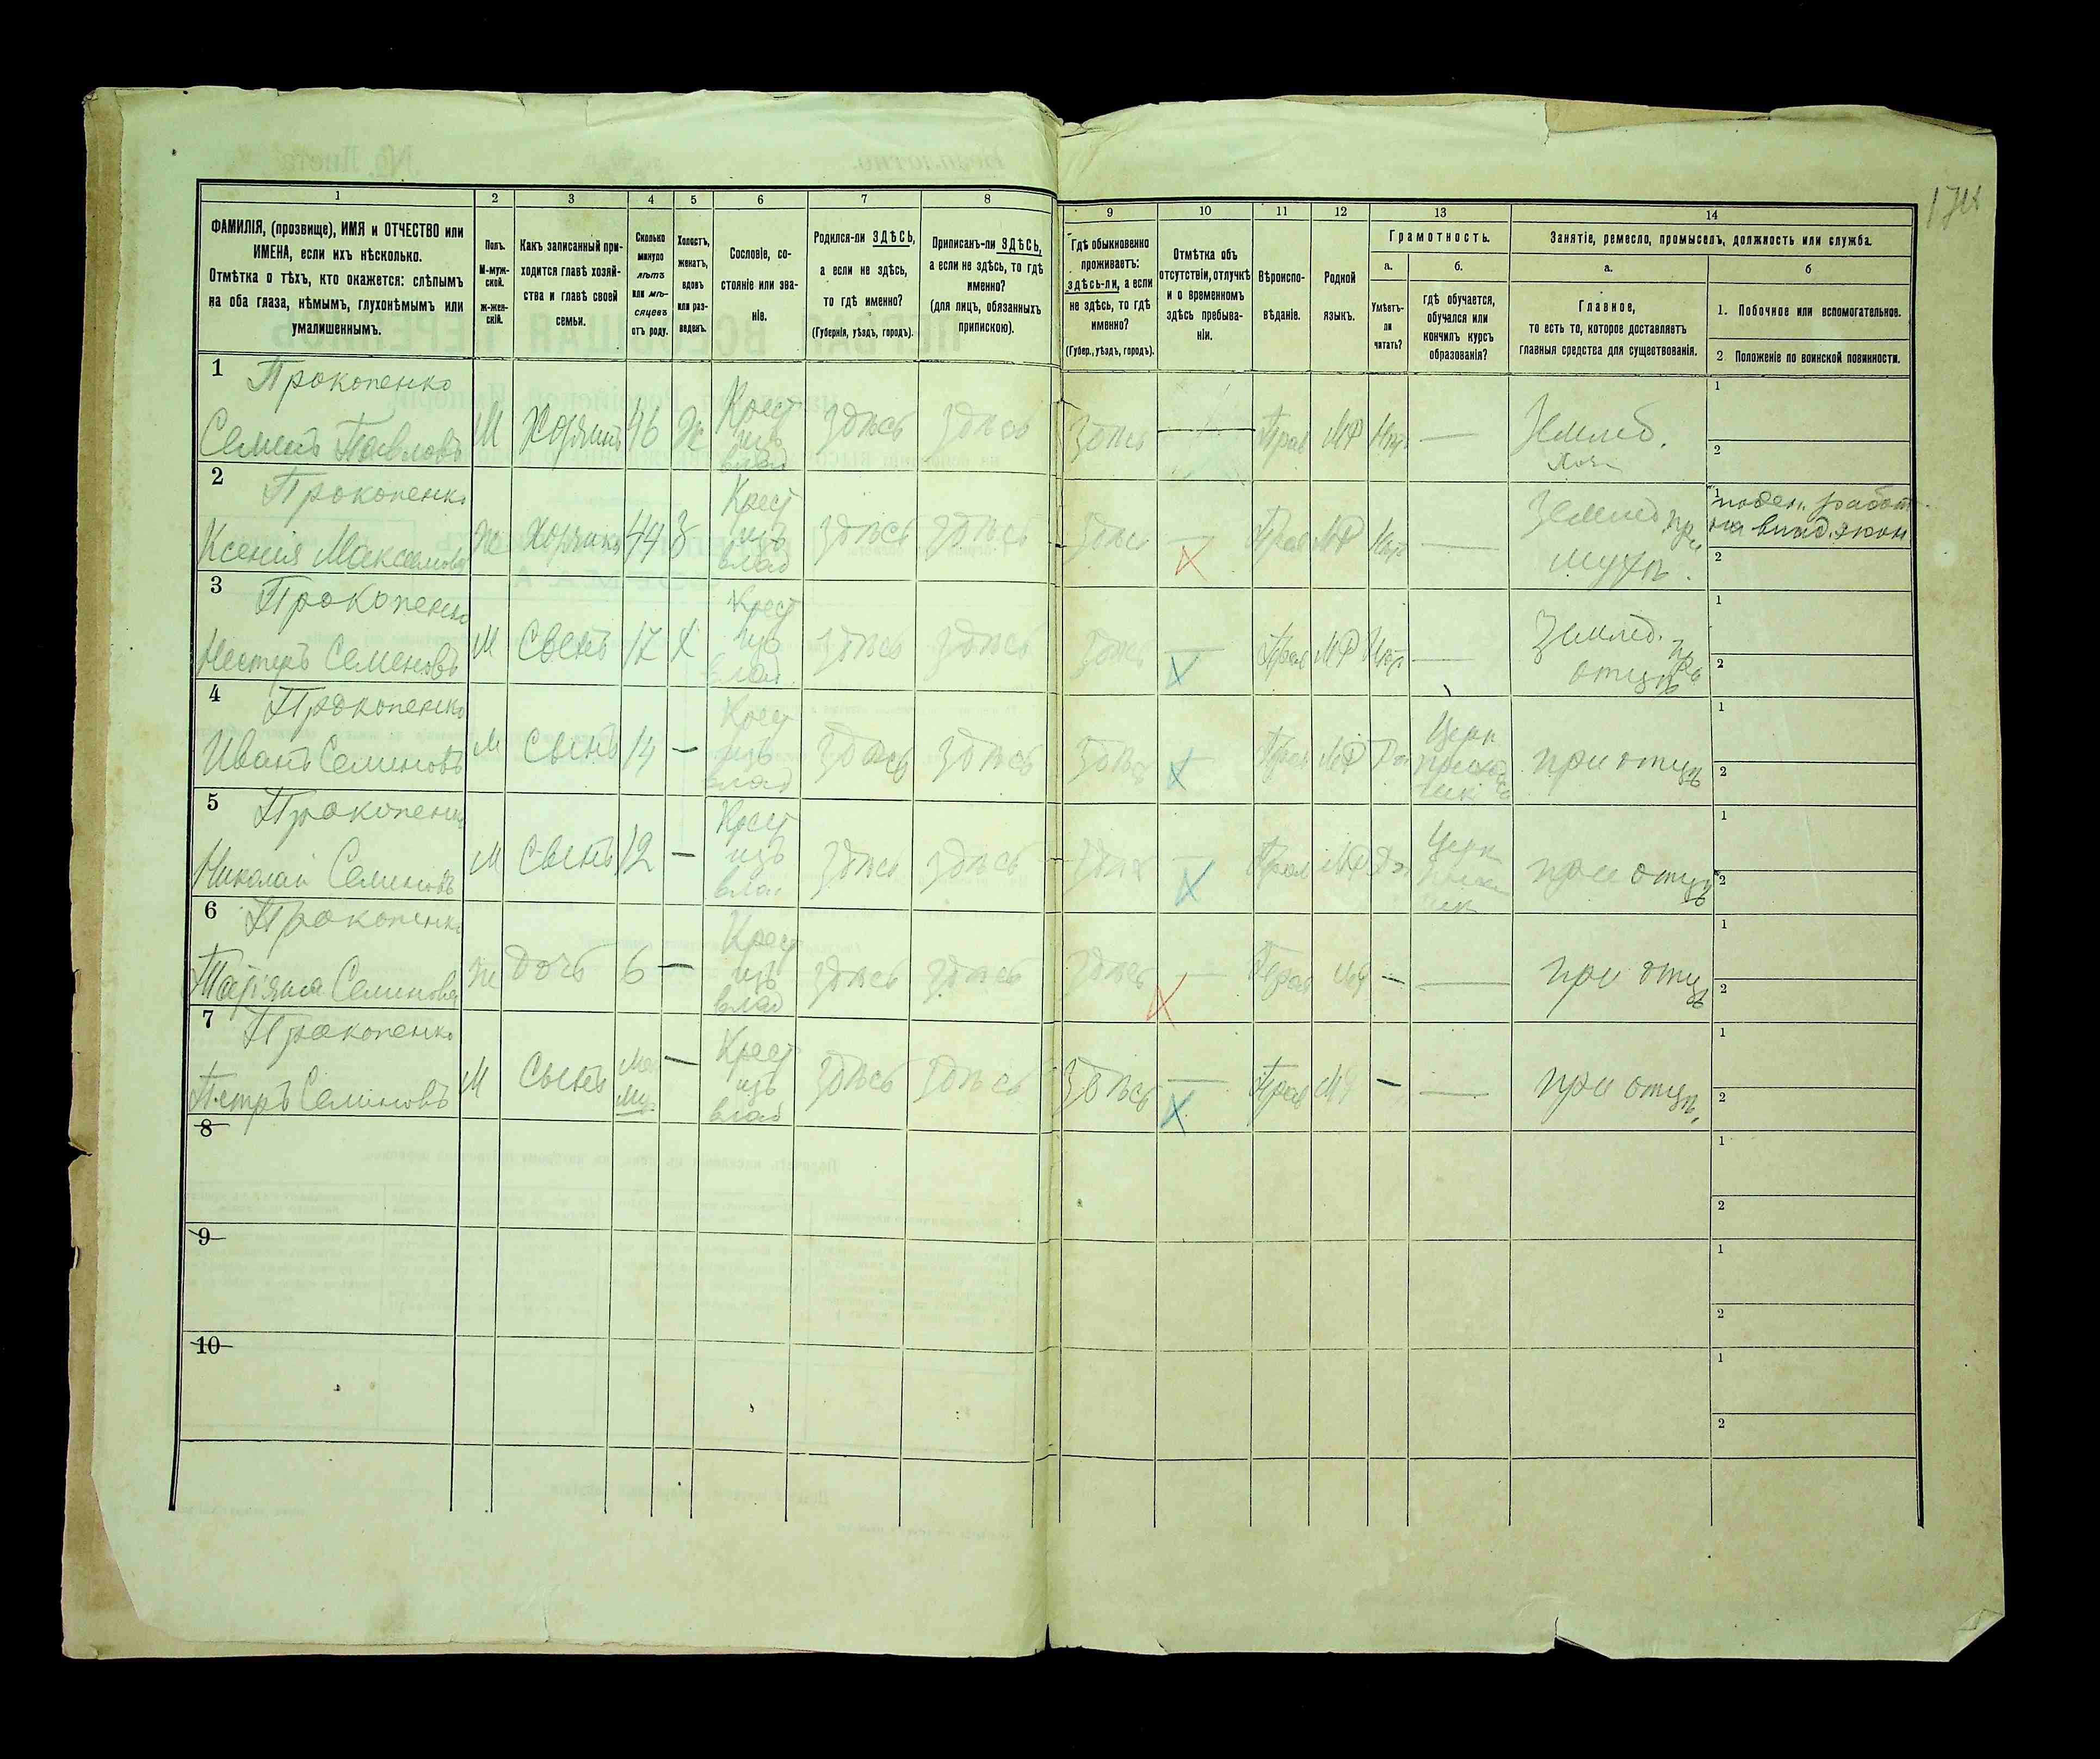 174
1
2
3
4
5
6
7
8
9
10
11
12
13
14
ФАМИЛІЯ, (прозвище), ИМЯ и ОТЧЕСТВО или
ИМЕНА, если ихъ нѣсколько.
Отмѣтка о тѣхъ, кто окажется: слѣпымъ
на оба глаза, нѣмымъ, глухонѣмымъ или
умалишеннымъ.
Полъ.
М-муж-
ской.
ж-жен-
скій.
Какъ записанный при-
ходится главѣ хозяй-
ства и главѣ своей
семьи.
Сколько
минуло
лѣтъ
или мѣ-
сяцевъ
отъ роду.
Холостъ,
женатъ,
вдовъ
или раз-
веденъ.
Сословіе, со-
стояніе или зва-
ніе.
Родился-ли ЗДѢСЬ,
а если не здѣсь,
то гдѣ именно?
(Губернія, уѣздъ, городъ).
Приписанъ-ли ЗДѢСЬ,
а если не здѣсь, то гдѣ
именно?
(для лицъ, обязанныхъ
припискою).
Гдѣ обыкновенно
проживаетъ:
здѣсь-ли, а если
не здѣсь, то гдѣ
именно?
(Губер., уѣздъ, городъ).
Отмѣтка объ
отсутствіи, отлучкѣ
и о временномъ
здѣсь пребыва-
ніи.
Вѣроиспо-
вѣданіе.
Родной
языкъ.
Грамотность.
а.
б.
Умѣетъ-
ли
читать?
гдѣ обучается,
обучался или
кончилъ курсъ
образованія?
Занятіе, ремесло, промыселъ, должность или служба.
а.
б
Главное,
то есть то, которое доставляетъ
главныя средства для существованія.
1. Побочное или вспомогательное.
2 Положеніе по воинской повинности.
1 Прокопенко
Семенъ Павловъ М Хозяинъ 46 Ж Крест изъ влад здѣсь здѣсь здѣсь — Прав МР Нѣт — Землед. Хозя
1
2
2 Прокопенко
Ксенія Максимова Ж 44 З Крест изъ влад здѣсь здѣсь здѣсь — Прав МР Нѣт — Землед при мужѣ.
1 поден. работ
на влад. экон
2
3 Прокопенко
Нестеръ Семеновъ М Сынъ 17 Х Крест изъ влад. здѣсь здѣсь здѣсь — Прав МР Нѣт — Землед. при отцѣ
1
2
4 Прокопенко
Иванъ Семеновъ М Сынъ 14 — Крест изъ влад здѣсь здѣсь здѣсь Прав МР Да Церк при отцѣ
1
2
5 Прокопенко
Николай Семеновъ М Сынъ 12 — Крест изъ влад здѣсь здѣсь здѣсь — Прав МР Да Церк при отцѣ
1
2
6 Прокопенко
Татьяна Семенова Ж Дочь 6 — Крест изъ влад здѣсь здѣсь здѣсь — Прав МР — — при отцѣ
1
2
7 Прокопенко
Петръ Семеновъ М Сынъ — Крест изъ влад здѣсь здѣсь здѣсь — Прав МР — — при отцѣ.
1
2
8
1
2
9
1
2
10
1
2